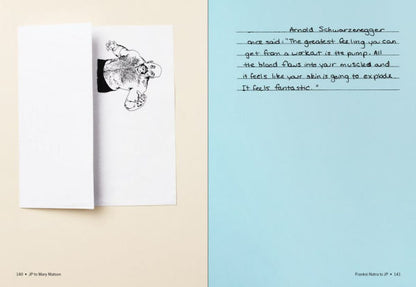 Arnold Schwarzenegger
once said: "The greatest feeling you can
get from a workout is the pump. All
the blood flows into your muscles and
it feels like your skin is going to explode.
It feels fantastic."
140 • JP to Mary Matson
Franko Nutra to JP • 141